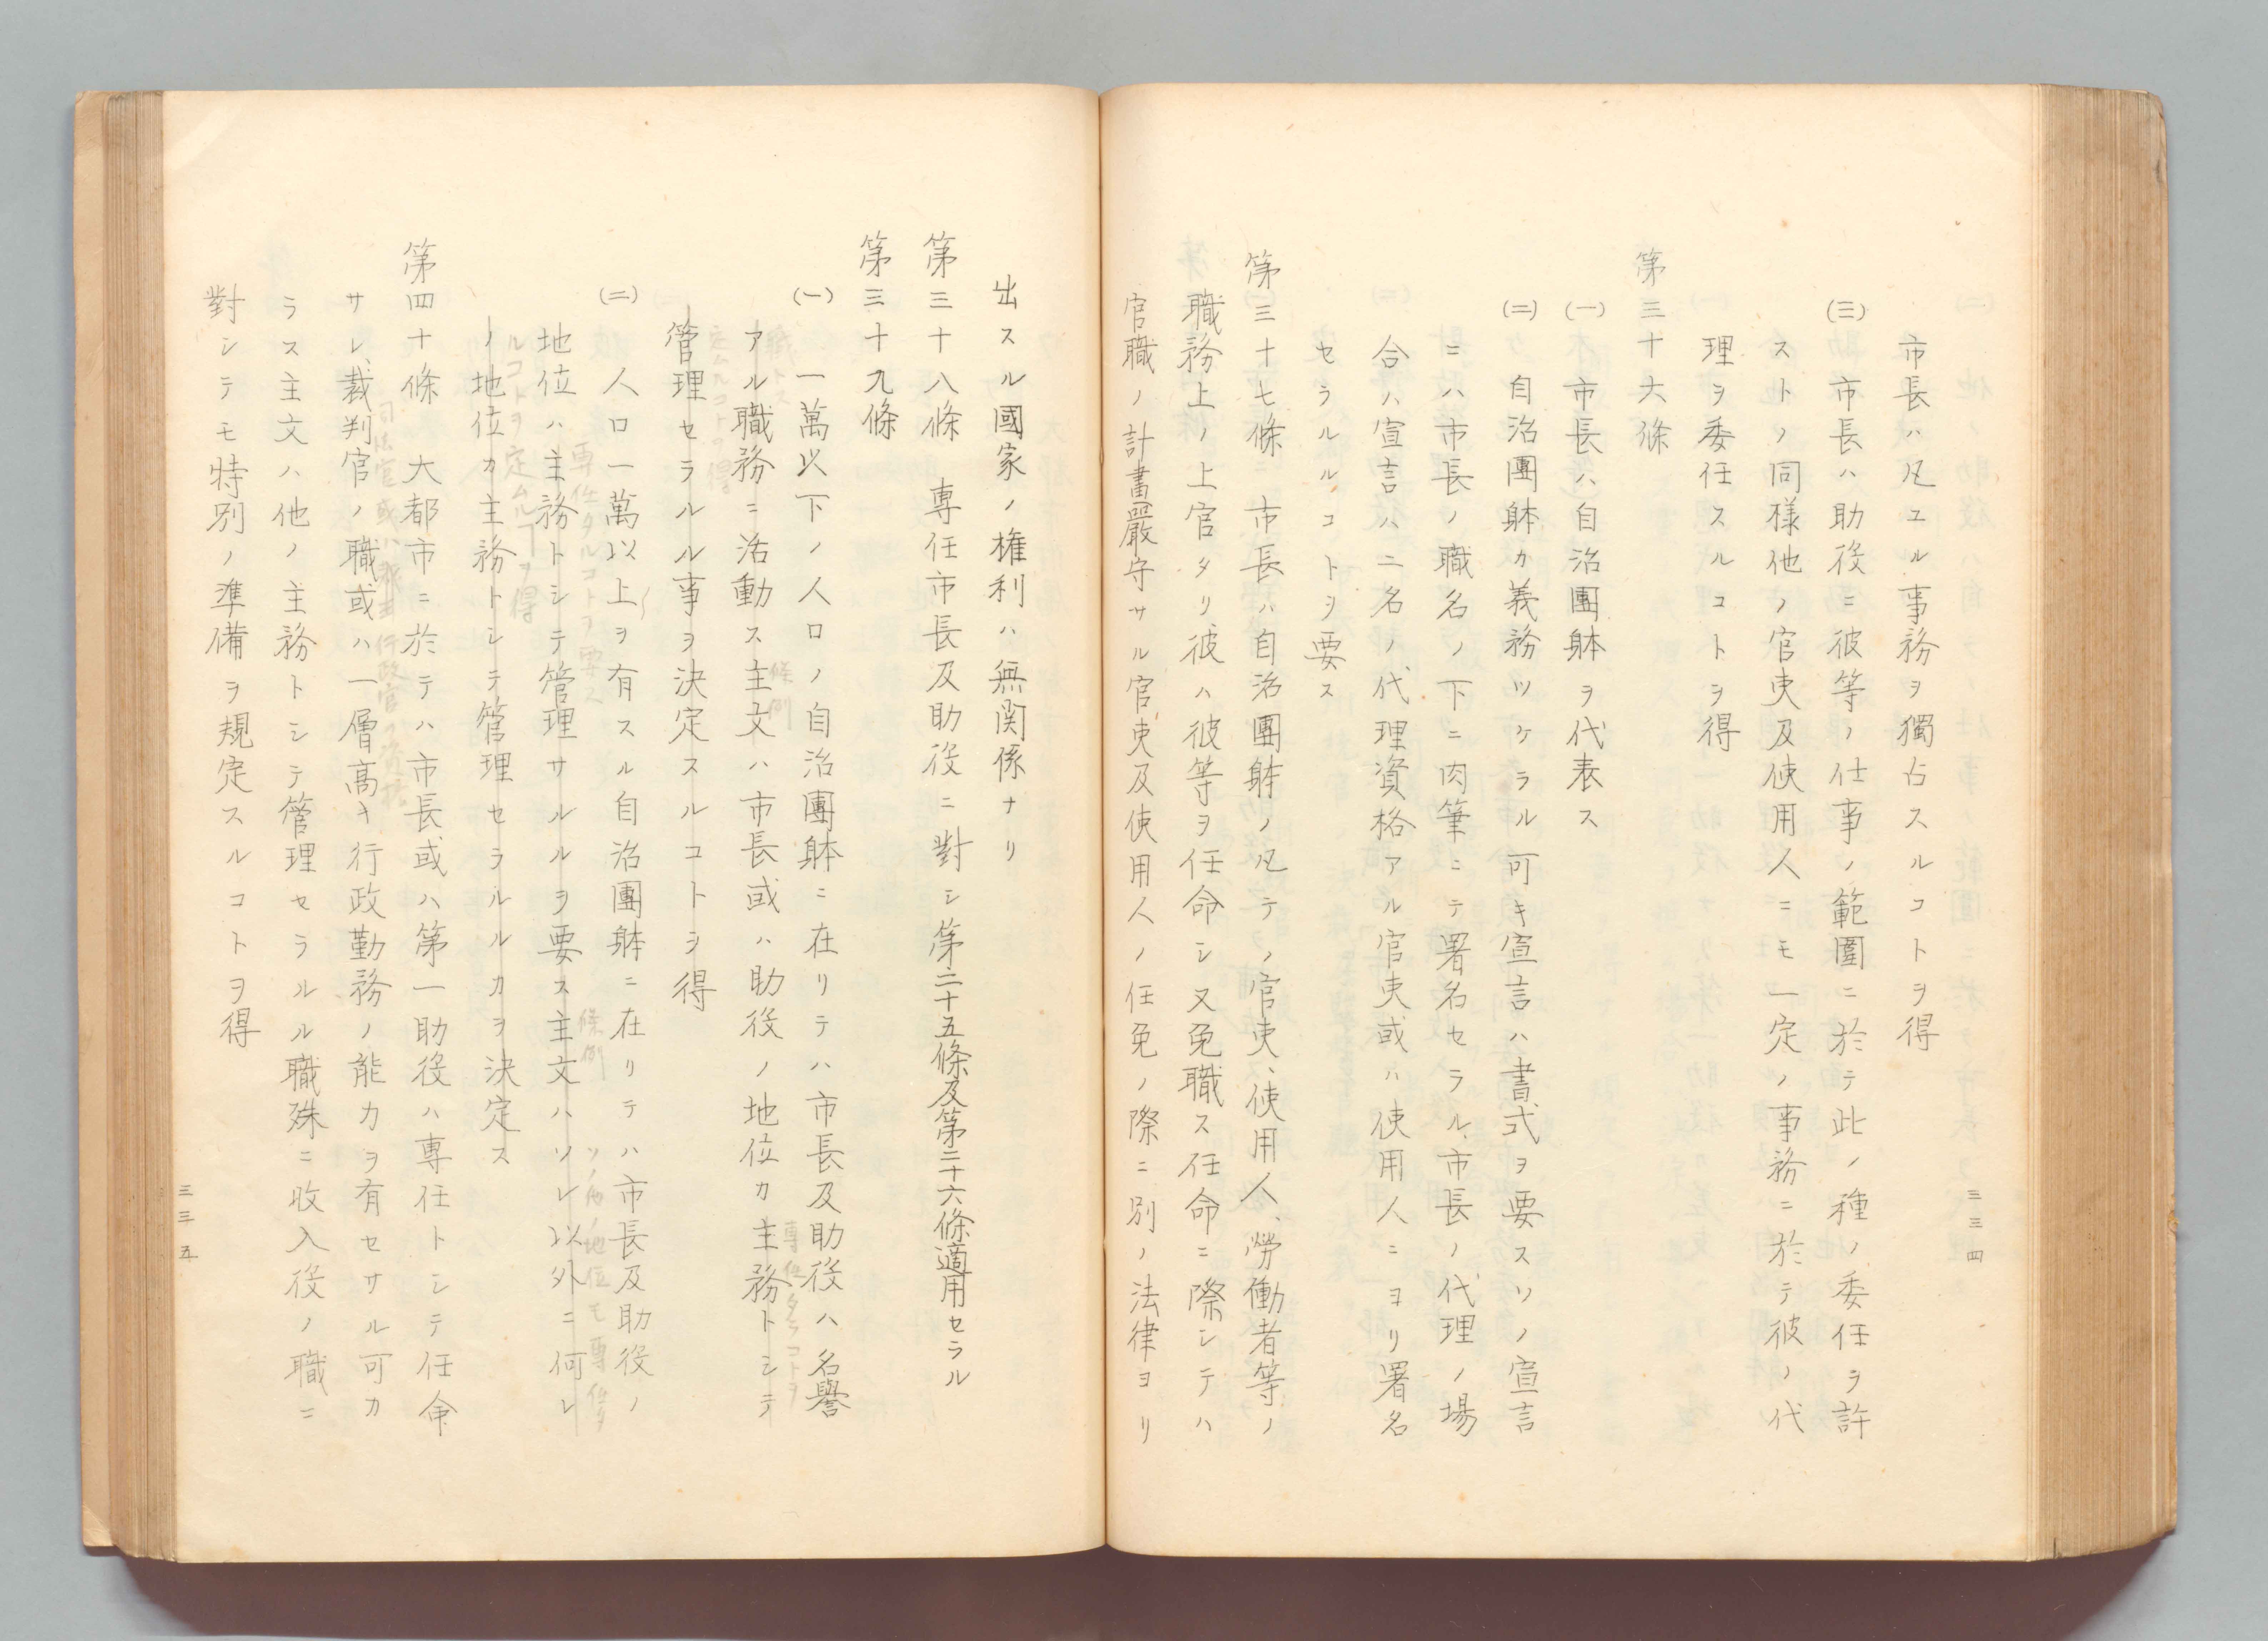 市長ハ凡ユル事務ヲ獨占スルコトヲ得
(三) 市長ハ助役ニ彼等ノ仕事ノ範圍ニ於テ此ノ種ノ委任ヲ許
ストノ同樣他ノ官吏及使用人ニモ一定ノ事務ニ於テ彼ノ代
理ヲ委任スルコトヲ得
第三十六條
(一) 市長ハ自治團躰ヲ代表ス
(二) 自治團躰カ義務ツケラル可キ宣言ハ書式ヲ要スソノ宣言
ニハ市長ノ職名ノ下ニ肉筆ニテ署名セラル、市長ノ代理ノ場
合ハ宣言ハ二名ノ代理資格アル官吏或ハ使用人ニヨリ署名
セラルルコトヲ要ス
第三十七條 市長ハ自治團躰ノ凡テノ官吏、使用人、勞働者等ノ
職務上ノ上官タリ彼ハ彼等ヲ任命シ又免職ス任命ニ際シテハ
官職ノ計畫嚴守サル官吏及使用人ノ任免ノ際ニ別ノ法律ヨリ
三三四
出スル國家ノ権利ハ無関係ナリ
第三十八條 専任市長及助役ニ對シ第二十五條及第二十六條適用セラル
第三十九條
(一) 一萬以下ノ人口ノ自治團躰ニ在リテハ市長及助役ハ名譽
職トス 條例 専任タルコトヲ
アル職務ニ活動ス主文ハ市長或ハ助役ノ地位カ主務トシテ
定ムルコトヲ得
管理セラルル事ヲ決定スルコトヲ得
(二) 人口一萬以上ヲ有スル自治團躰ニ在リテハ市長及助役ノ
専任タルコトヲ要ス 條例 ソノ他ノ地位モ専任タ
地位ハ主務トシテ管理サルルヲ要ス主文ハソレ以外ニ何レ
ルコトヲ定ムルコトヲ得
ノ地位カ主務トシテ管理セラルルカヲ決定ス
第四十條 大都市ニ於テハ市長或ハ第一助役ハ専任トシテ任命
司法官或ハ 行政官ノ資格
サレ、裁判官ノ職或ハ一層高キ行政勤務ノ能力ヲ有セサル可カ
ラス主文ハ他ノ主務トシテ管理セラルル職殊ニ收入役ノ職ニ
對シテモ特別ノ準備ヲ規定スルコトヲ得
三三五